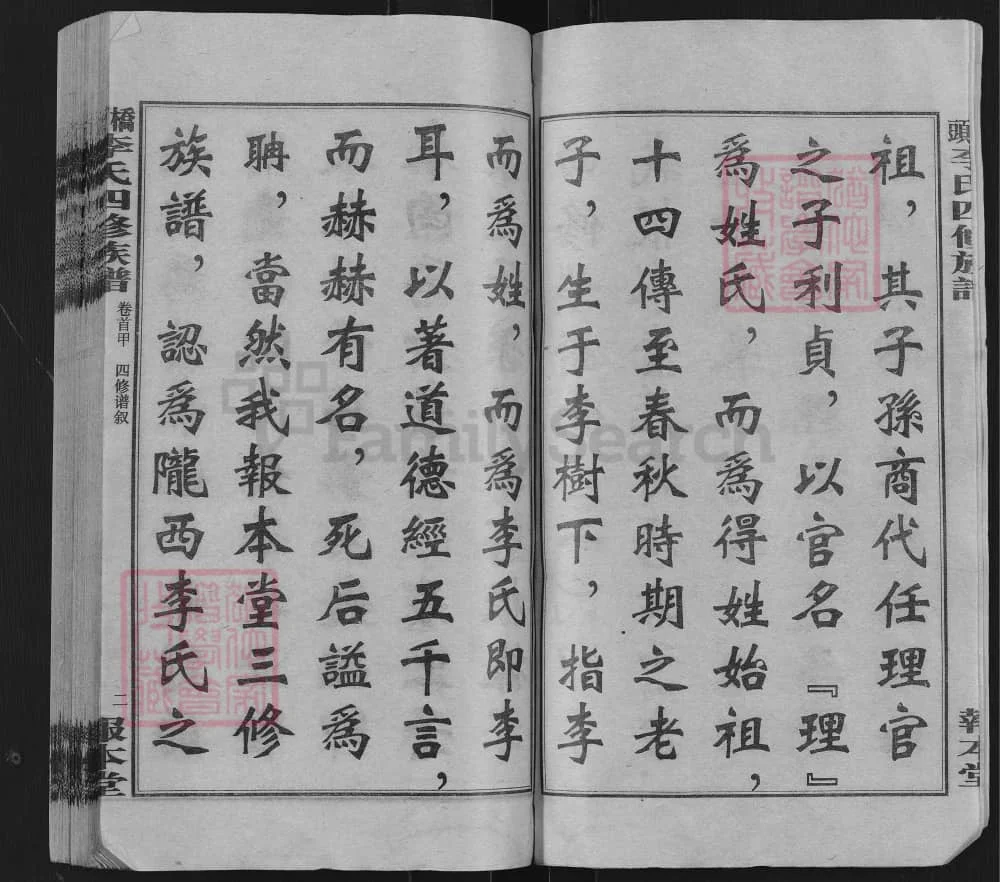 頭李氏四修族譜
報本堂
祖，其子孫商代任理官
之子利貞，以官名『理』
爲姓氏，而爲得姓始祖，
十四傳至春秋時期之老
子，生于李樹下，指李
而爲姓，而爲李氏即李
耳，以著道德經五千言，
而赫赫有名，死后謚爲
聃，當然我報本堂三修
族譜，認爲隴西李氏之
橋李氏四修族譜
卷首甲
四修谱叙
二
報本堂
FamilySearch